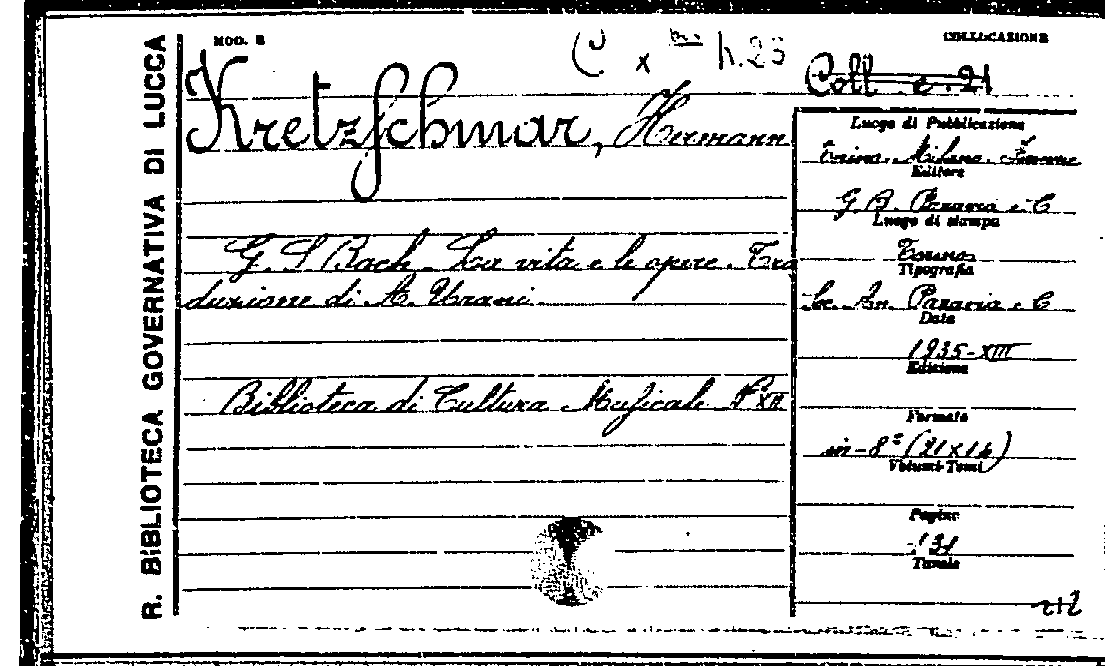 R. BIBLIOTECA GOVERNATIVA DI LUCCA
MOD. B
COLLOCAZIONE
C x m. h. 25
Coll e. 21
Kretzschmar, Hermann
G. S. Bach. La vita e le opere. Tra
duzione di A. Urani.
Biblioteca di Cultura Musicale
Luogo di Pubblicazione
Torino. Milano. Firenze
Editore
G. B. Paravia e C
Luogo di stampa
Torino
Tipografia
Paravia e C
Data
1935-XIII
Edizione
Formato
in-8° (21x14)
Volumi-Tomi
Pagine
131
Tavole
212